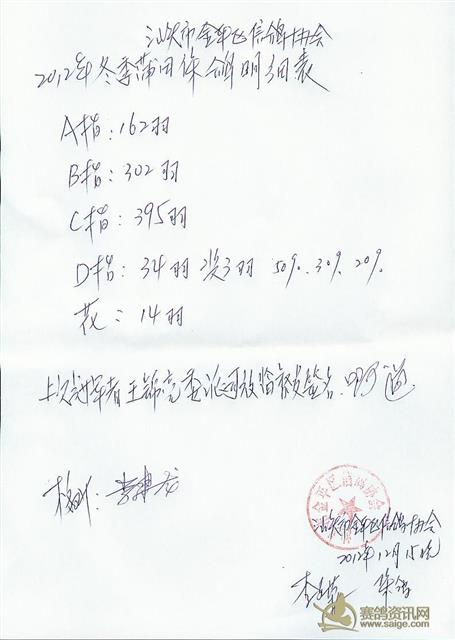 汕头市金平区信鸽协会
2012年冬季莆田集鸽明细表
A指:162羽
B指:302羽
C指:395羽
D指:34羽 奖3羽 50%.30%.20%.
花:14羽
上次获奖者王锦亮委派司放临裁签名.
金平区信鸽协会
汕头市金平区信鸽协会
2012年12月15晚
赛鸽资讯网
www.saige.com